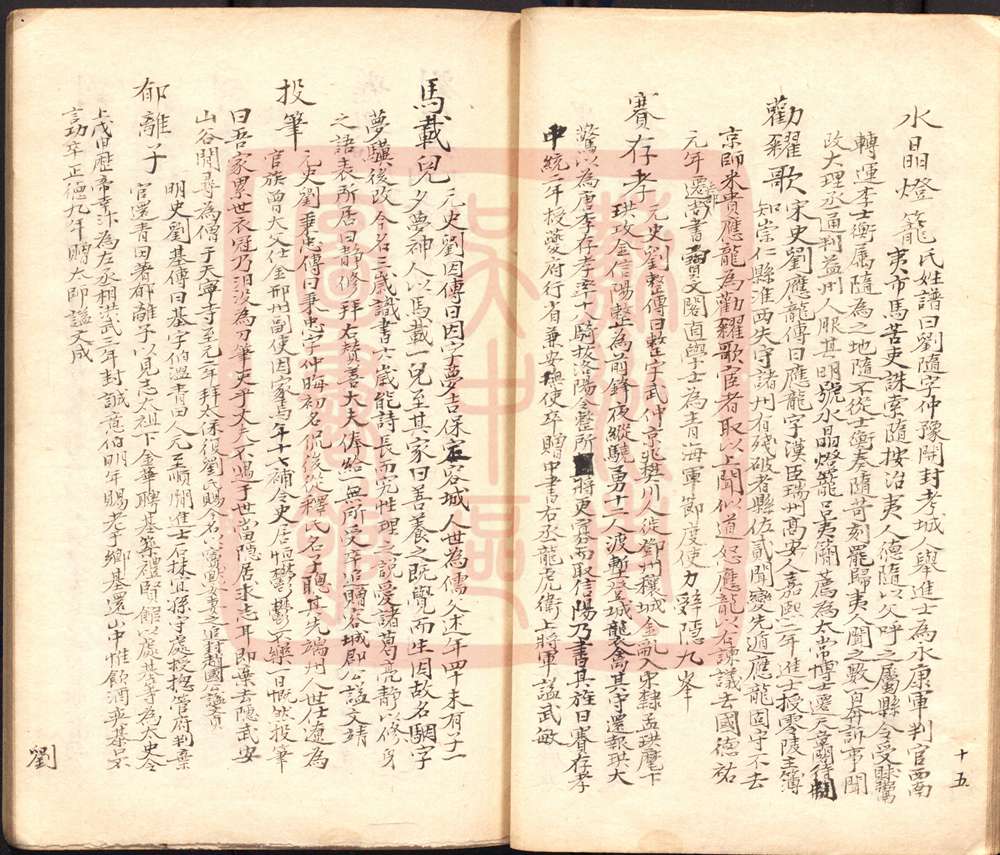 水晶燈籠 氏姓譜曰劉隨字仲豫開封考城人舉進士為永康軍判官西南
夷市馬苦吏誅索隨按治夷人德隨以父呼之屬縣令受賕鬻
轉運李士衡屬隨為之地隨不從士衡奏隨苛刻罷歸夷人聞之數百舟訴事聞
改大理丞通判益州人服其明號水晶燈籠呂夷簡薦為太常博士遷天章閣待制
勸糴歌 宋史劉應龍傳曰應龍字漢臣瑞州高安人嘉熙二年進士授零陵主簿
知崇仁縣淮西失守諸州有殘破者縣佐貳聞變先遁應龍固守不去
京師米貴應龍為勸糴歌宦者取以上聞似道怒應龍以右諫議去國德祐
元年遷尚書寶文閣直學士為青海軍節度使力辭隱九峯
賽存孝 元史劉整傳曰整字武仲京兆樊川人徙鄧州穰城金亂入宋隸孟珙麾下
珙攻金信陽整為前鋒夜縱驍勇十二人渡塹登城襲擒其守還報珙大
驚以為唐李存孝率十八騎拔洛陽今整所將更寡而取信陽乃書其旌曰賽存孝
中統二年授夔府行省兼安撫使卒贈中書右丞龍虎衛上將軍謚武敏
十五
馬載兒 元史劉因傳曰因字夢吉保定容城人世為儒父述年四十未有子一
夕夢神人以馬載一兒至其家曰善養之既覺而生因故名駰字
夢驥後改今名三歲識書六歲能詩長而究性理之說愛諸葛亮靜以修身
之語表所居曰靜修拜右贊善大夫俸給一無所受卒追贈容城郡公謚文靖
投筆 元史劉秉忠傳曰秉忠字仲晦初名侃後從釋氏名子聰其先瑞州人世仕遼為
官族曾大父仕金邢州副使因家焉年十七補令史居恒鬱鬱不樂一日慨然投筆
曰吾家累世衣冠乃汨沒為刀筆吏乎丈夫不遇于世當隱居求志耳即棄去隱武安
山谷間尋為僧于天寧寺至元年拜太保復劉氏賜今名以竇默女妻之追封趙國公謚文貞
郁離子 明史劉基傳曰基字伯溫青田人元至順間進士石抹宜孫守處授總管府判棄
官還青田著郁離子以見志太祖下金華聘基築禮賢館以處基等為太史令
上茂曰歷帝幸汴為左丞相洪武三年封誠意伯明年賜老于鄉基還山中惟飲酒弈棊口不
言功卒正德九年贈太師謚文成
劉